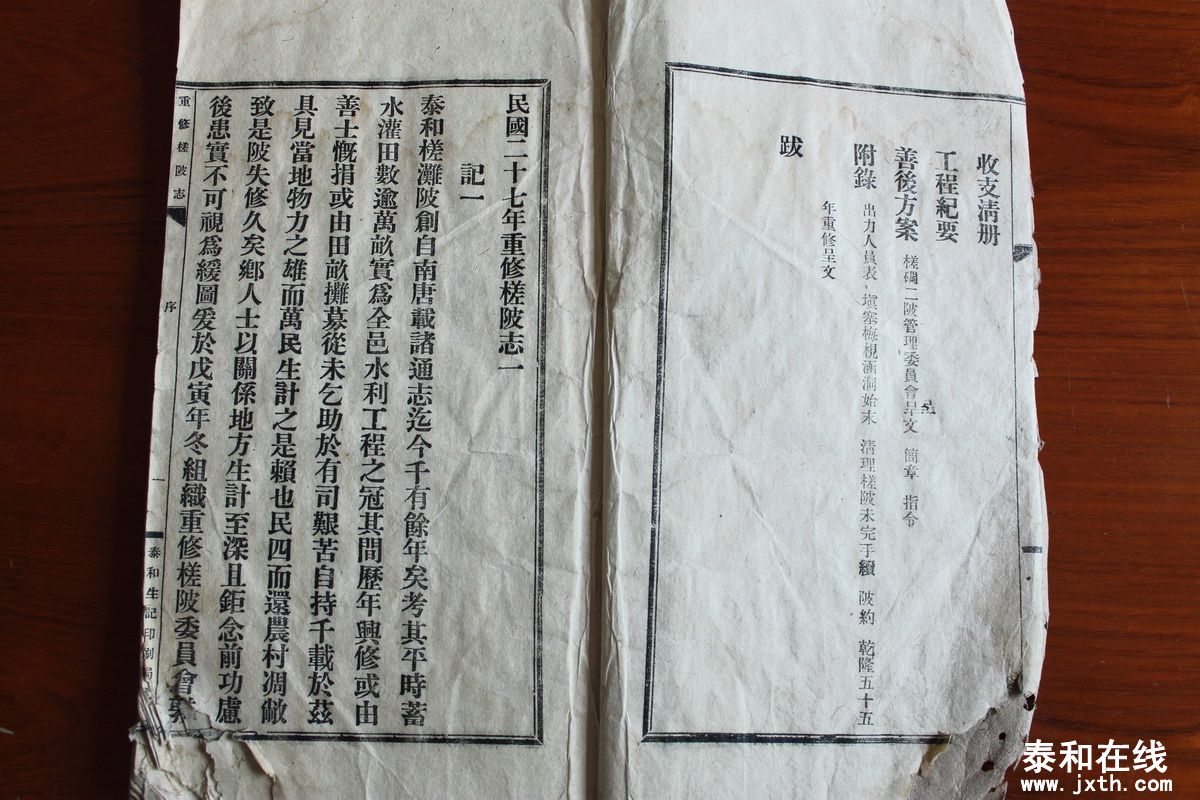 收支淸册
工程紀要
善後方案 槎碉二陂管理委員會呈文 簡章 指令
附錄 出力人員表 塡塞梅枧涵洞始末 淸理槎陂未完手續 陂約 乾隆五十五
年重修呈文
跋
民國二十七年重修槎陂志一
記一
泰和槎灘陂創自南唐載諸通志迄今千有餘年矣考其平時蓄
水灌田數逾萬畝實爲全邑水利工程之冠其間歷年興修或由
善士慨捐或由田畝攤募從未乞助於有司艱苦自持千載於茲
具見當地物力之雄而萬民生計之是賴也民四而還農村凋敝
致是陂失修久矣鄕人士以關係地方生計至深且鉅念前功慮
後患實不可視爲緩圖爰於戊寅年冬組織重修槎陂委員會
重修槎陂志
序
一
泰和生記印刷局
泰和在线
www.jxth.com